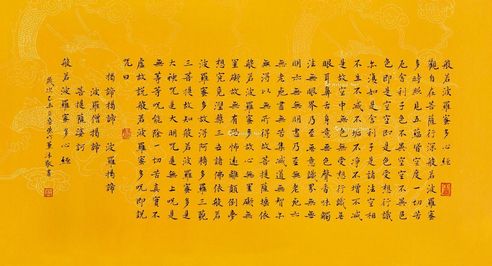 般若波羅蜜多心經
觀自在菩薩行深般若波羅蜜
多時照見五蘊皆空度一切苦
厄舍利子色不異空空不異色
色即是空空即是色受想行識
亦復如是舍利子是諸法空相
不生不滅不垢不淨不增不減
是故空中無色無受想行識無
眼耳鼻舌身意無色聲香味觸
法無眼界乃至無意識界無無
明亦無無明盡乃至無老死亦
無老死盡無苦集滅道無智亦
無得以無所得故菩提薩埵依
般若波羅蜜多故心無罣礙無
罣礙故無有恐怖遠離顛倒夢
想究竟涅槃三世諸佛依般若
波羅蜜多故得阿耨多羅三藐
三菩提故知般若波羅蜜多是
大神咒是大明咒是無上咒是
無等等咒能除一切苦真實不
虛故說般若波羅蜜多咒即說
咒曰
揭諦揭諦 波羅揭諦
波羅僧揭諦
菩提薩婆訶
般若波羅蜜多心經
歲次